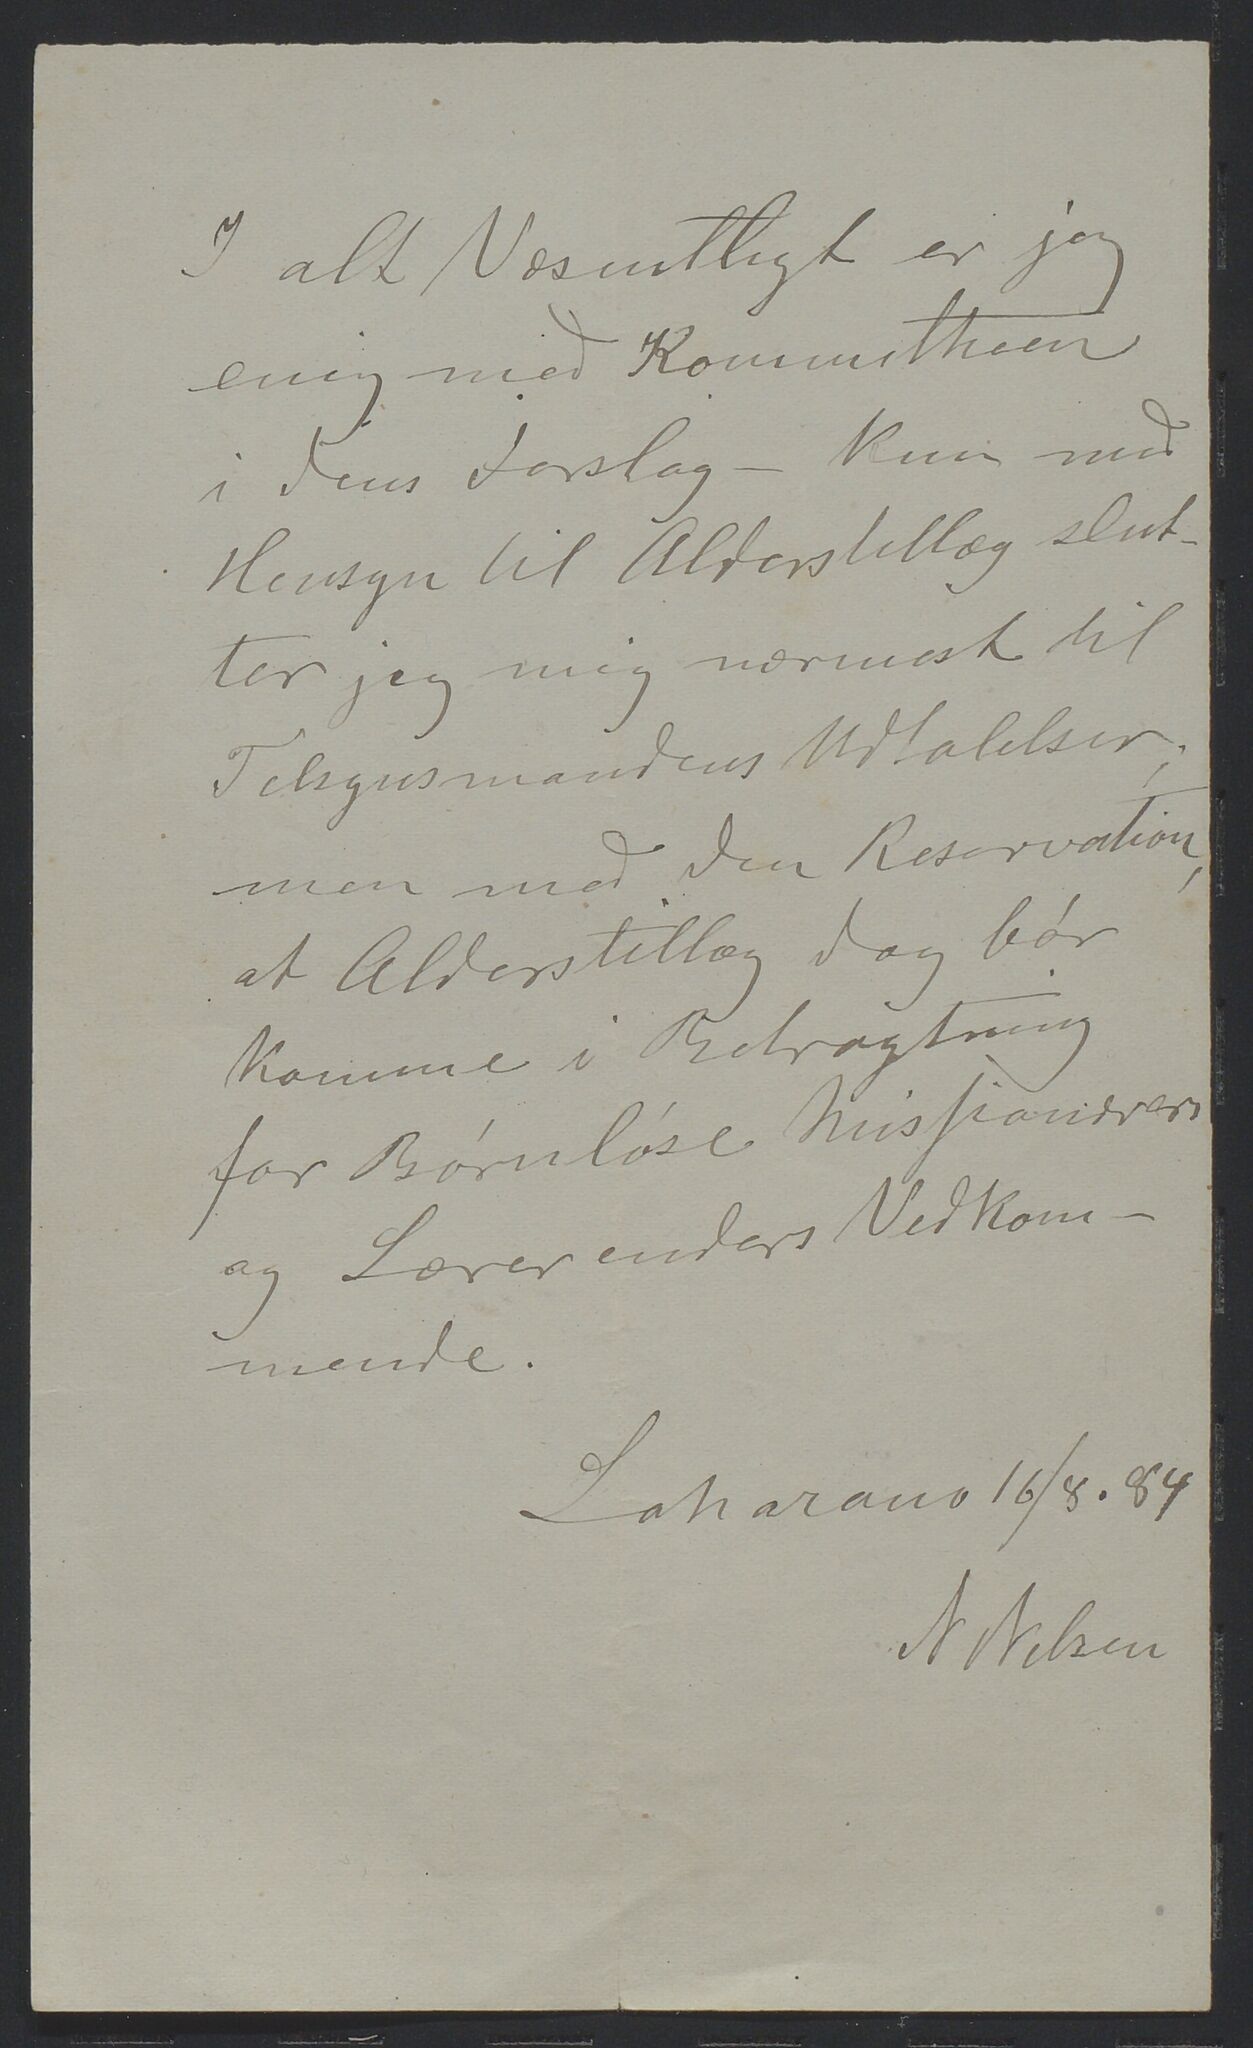 I alt Væsentligt er jeg
enig med Kommitheen
i dens Forslag – kun med
Hensyn til Alderstillæg slut-
ter jeg mig nærmest til
Tilsynsmandens Udtalelser,
men med den Reservation,
at Alderstillæg dog bör
komme i Betragtning
for Börnlöse Missionærers
og Lærerenders Vedkom-
mende.
Loharano 16/8. 84
N Nilsen